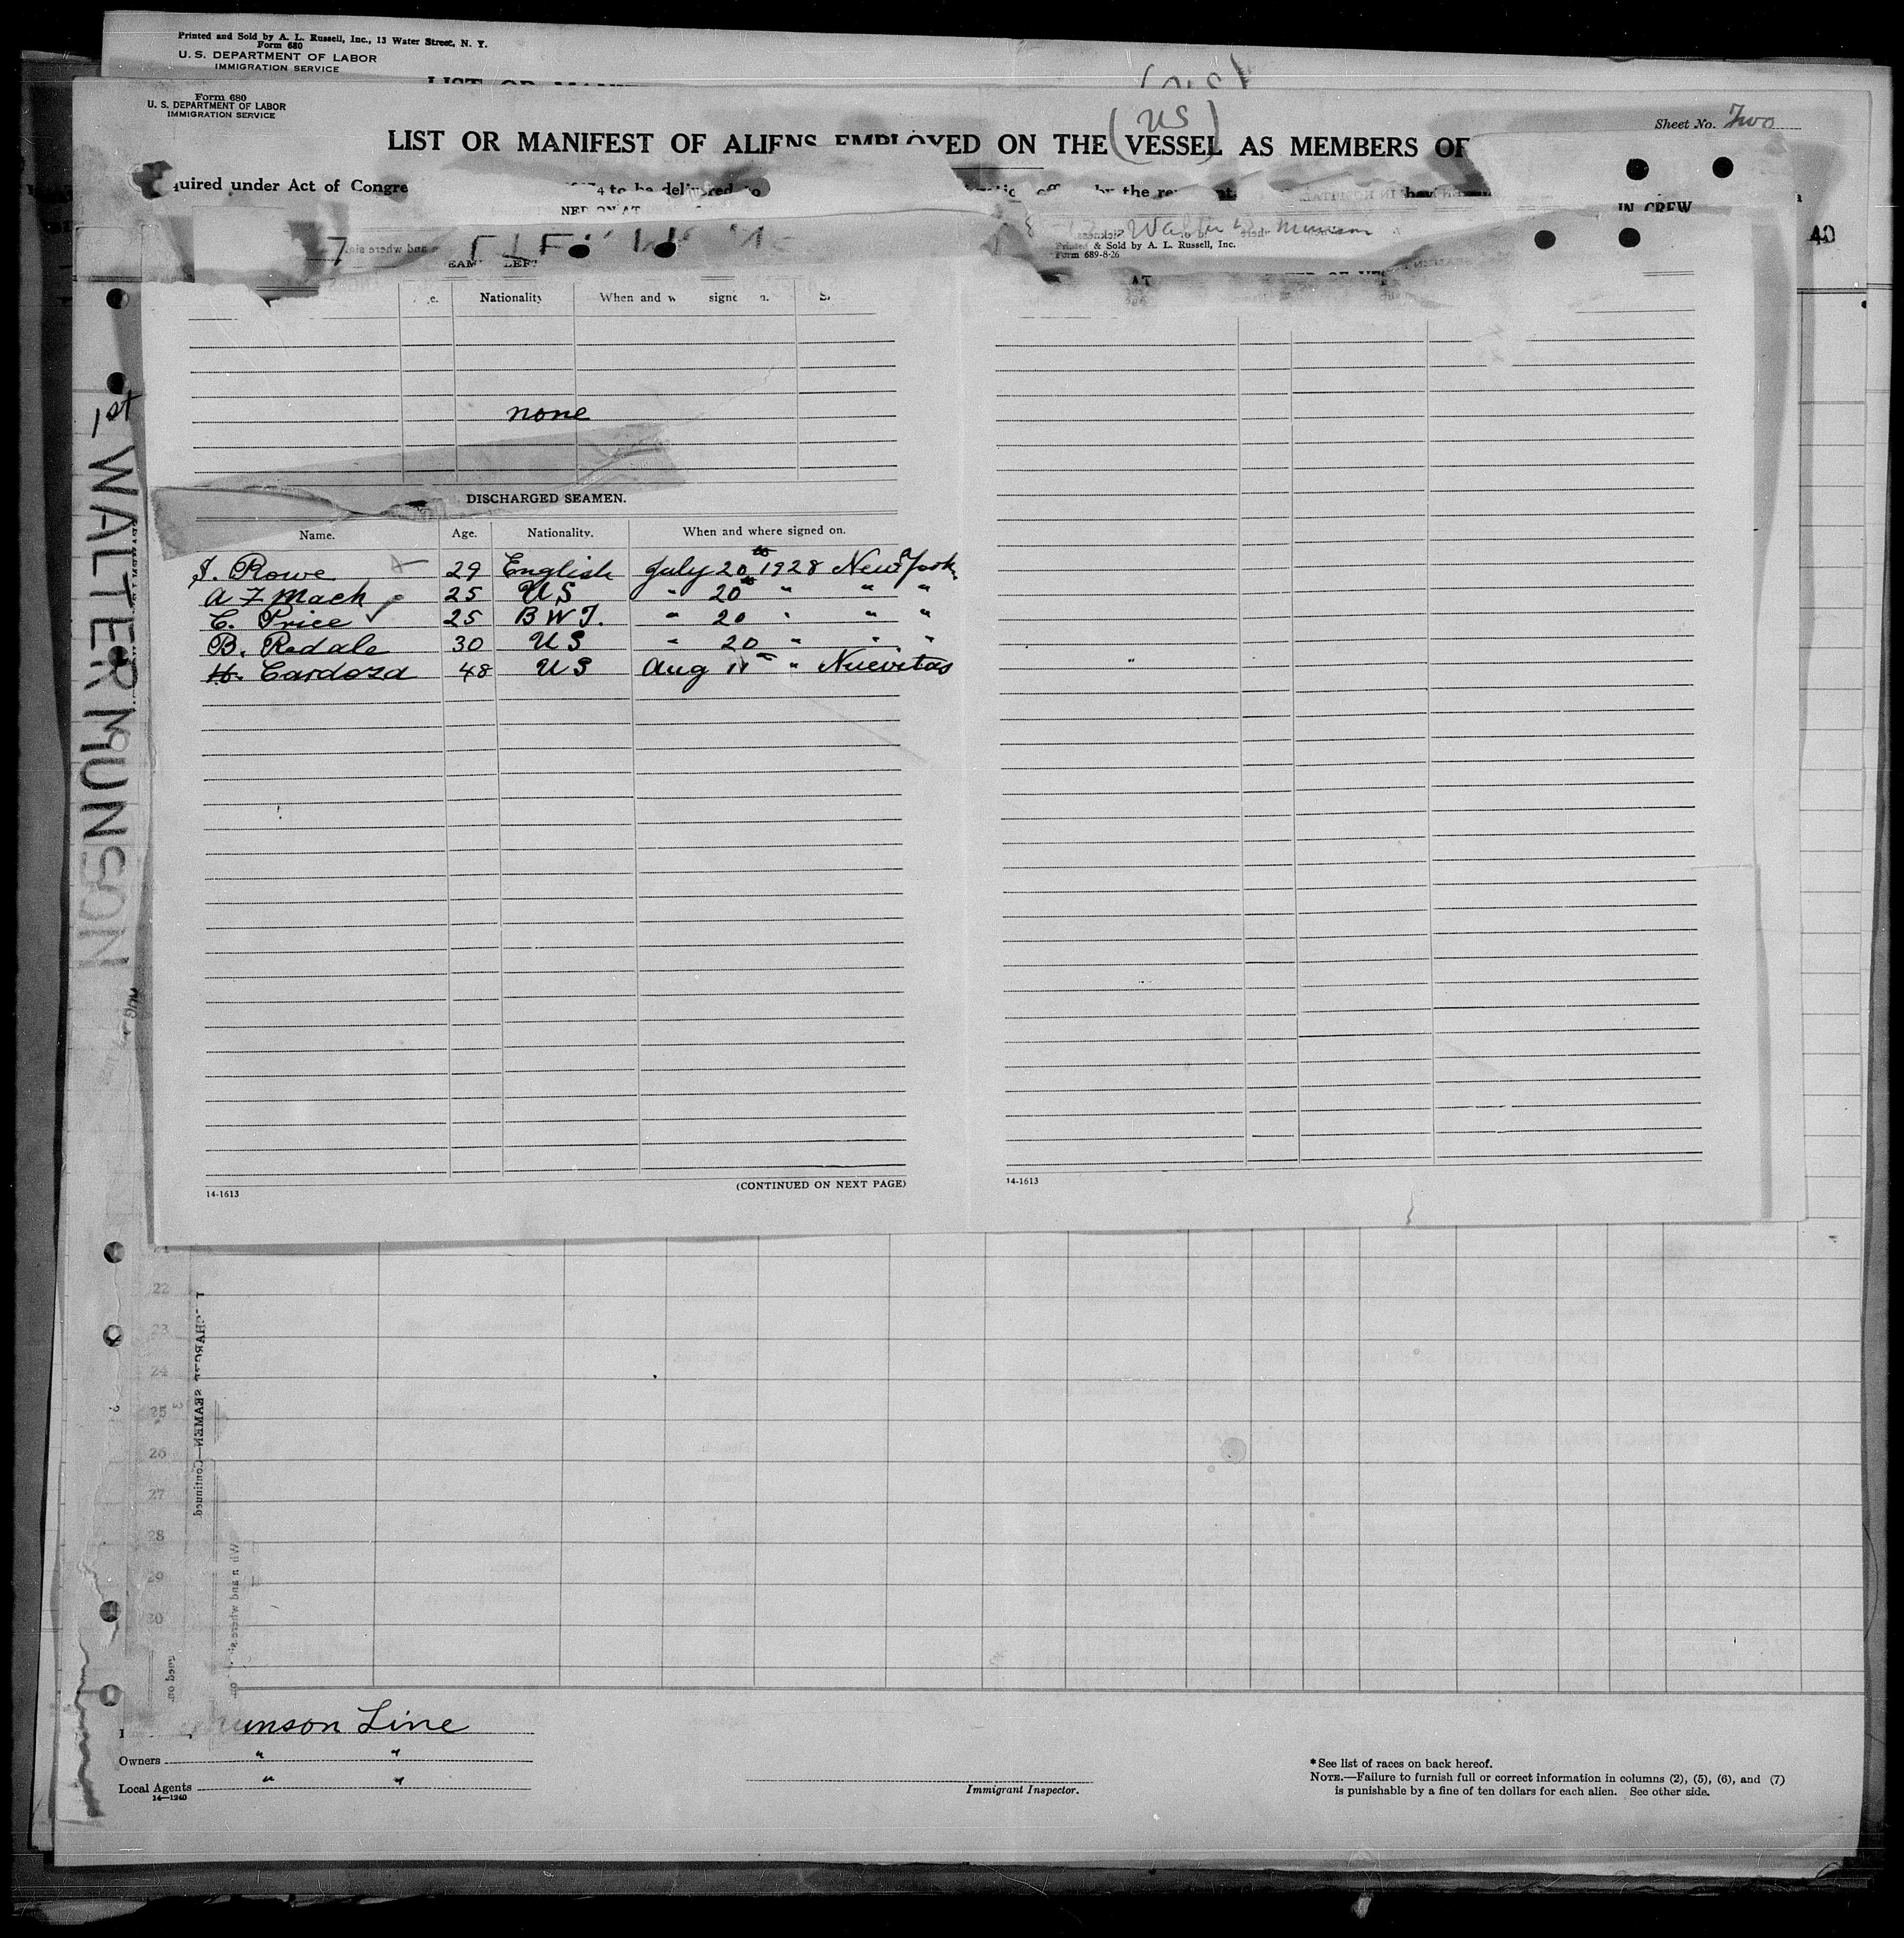 Printed and Sold by A. L. Russell, Inc., 13 Water Street, N. Y.
Form 680
U. S. DEPARTMENT OF LABOR
IMMIGRATION SERVICE
Form 680
U. S. DEPARTMENT OF LABOR
IMMIGRATION SERVICE
(US)
Sheet No. Two
LIST OR MANIFEST OF ALIENS EMPLOYED ON THE VESSEL AS MEMBERS OF
quired under Act of Congre
to be delivered to
by the
IN CREW
40
Walter D Munson
Printed & Sold by A. L. Russell, Inc.
Form 689-8-26
Nationality When and signe
none
DISCHARGED SEAMEN.
Name. Age. Nationality. When and where signed on.
J. Rowe 29 English July 20th 1928 New York
A F Mack 25 US " 20 " " "
C. Price 25 B W I. " 20 " " "
B. Redale 30 US " 20 " " "
H. Cardoza 48 US Aug 11th " Nuevitas
14-1613
(CONTINUED ON NEXT PAGE)
14-1613
1st WALTER MUNSON
22
23
24
25
26
27
28
29
30
SEAMEN—Continued
unson Line
Owners " "
Local Agents " "
14—1240
Immigrant Inspector.
*See list of races on back hereof.
NOTE.—Failure to furnish full or correct information in columns (2), (5), (6), and (7)
is punishable by a fine of ten dollars for each alien. See other side.